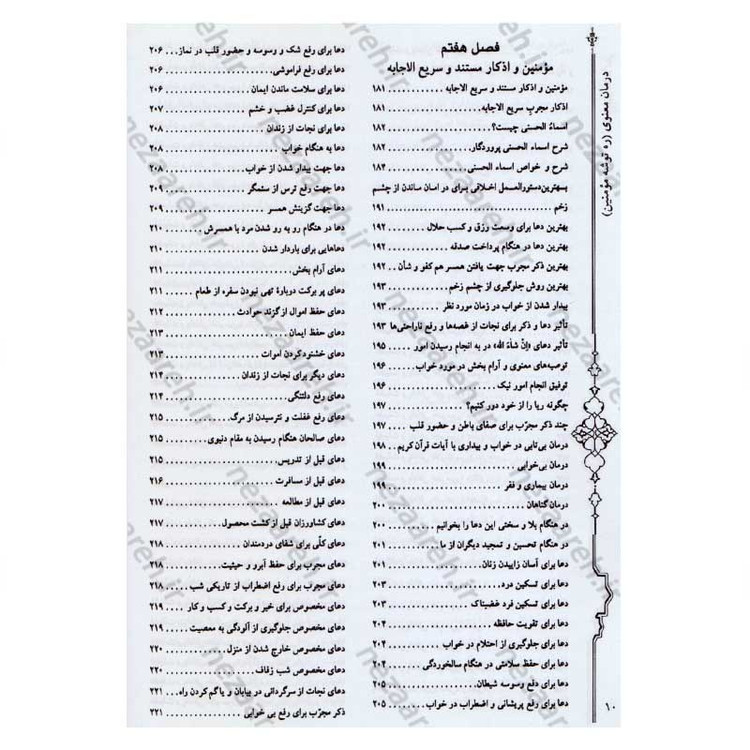 درمان معنوی (ره توشه مؤمنین)
فصل هفتم
مؤمنین و اذکار مستند و سریع الاجابه
مؤمنین و اذکار مستند و سریع الاجابه ............ ۱۸۱
اذکار مجرب سریع الاجابه ............ ۱۸۱
اسماءُ الحسنی چیست؟ ............ ۱۸۲
شرح اسماء الحسنی پروردگار ............ ۱۸۲
شرح و خواص اسماء الحسنی ............ ۱۸۴
بهترین‌دستورالعمل اخلاقی برای در امان ماندن از چشم
زخم ............ ۱۹۱
بهترین دعا برای وسعت رزق و کسب حلال ............ ۱۹۲
بهترین دعا در هنگام پرداخت صدقه ............ ۱۹۲
بهترین ذکر مجرب جهت یافتن همسر هم کفو و شأن ... ۱۹۲
بهترین روش جلوگیری از چشم زخم ............ ۱۹۳
بیدار شدن از خواب در زمان مورد نظر ............ ۱۹۳
تأثیر دعا و ذکر برای نجات از غصه‌ها و رفع ناراحتی‌ها ۱۹۳
تأثیر دعای «إنْ شاءَ الله» در به انجام رسیدن امور ... ۱۹۵
توصیه‌های معنوی و آرام بخش در مورد خواب ............ ۱۹۶
توفیق انجام امور نیک ............ ۱۹۶
چگونه ریا را از خود دور کنیم؟ ............ ۱۹۷
چند ذکر مجرّب برای صفای باطن و حضور قلب ............ ۱۹۷
درمان بی‌تابی در خواب و بیداری با آیات قرآن کریم ... ۱۹۸
درمان بی‌خوابی ............ ۱۹۹
درمان بیماری و فقر ............ ۱۹۹
درمان گناهان ............ ۲۰۰
در هنگام بلا و سختی این دعا را بخوانیم ............ ۲۰۰
در هنگام تحسین و تمجید دیگران از ما ............ ۲۰۱
دعا برای آسان زاییدن زنان ............ ۲۰۱
دعا برای تسکین درد ............ ۲۰۳
دعا برای تسکین فرد غضبناک ............ ۲۰۳
دعا برای تقویت حافظه ............ ۲۰۴
دعا برای جلوگیری از احتلام در خواب ............ ۲۰۴
دعا برای حفظ سلامتی در هنگام سالخوردگی ............ ۲۰۴
دعا برای دفع وسوسه شیطان ............ ۲۰۵
دعا برای رفع پریشانی و اضطراب در خواب ............ ۲۰۵
دعا برای رفع شک و وسوسه و حضور قلب در نماز ... ۲۰۶
دعا برای رفع فراموشی ............ ۲۰۶
دعا برای سلامت ماندن ایمان ............ ۲۰۶
دعا برای کنترل غضب و خشم ............ ۲۰۷
دعا برای نجات از زندان ............ ۲۰۸
دعا به هنگام خواب ............ ۲۰۸
دعا جهت بیدار شدن از خواب ............ ۲۰۸
دعا جهت رفع ترس از ستمگر ............ ۲۰۹
دعا جهت گزینش همسر ............ ۲۰۹
دعا در هنگام رو به رو شدن مرد با همسرش ............ ۲۱۰
دعاهایی برای باردار شدن ............ ۲۱۰
دعای آرام بخش ............ ۲۱۱
دعای پر برکت دربارهٔ تهی نبودن سفره از طعام ............ ۲۱۱
دعای حفظ اموال از گزند حوادث ............ ۲۱۲
دعای حفظ ایمان ............ ۲۱۳
دعای خشنود کردن اموات ............ ۲۱۳
دعای دیگر برای نجات از زندان ............ ۲۱۴
دعای رفع دلتنگی ............ ۲۱۴
دعای رفع غفلت و نترسیدن از مرگ ............ ۲۱۵
دعای صالحان هنگام رسیدن به مقام دنیوی ............ ۲۱۵
دعای قبل از تدریس ............ ۲۱۵
دعای قبل از مسافرت ............ ۲۱۶
دعای قبل از مطالعه ............ ۲۱۷
دعای کشاورزان قبل از کشت محصول ............ ۲۱۷
دعای کلّی برای شفای دردمندان ............ ۲۱۸
دعای مجرب برای حفظ آبرو و حیثیت ............ ۲۱۸
دعای مجرب برای رفع اضطراب از تاریکی شب ............ ۲۱۸
دعای مخصوص برای خیر و برکت و کسب و کار ............ ۲۱۹
دعای مخصوص جلوگیری از آلودگی به معصیت ............ ۲۱۹
دعای مخصوص خارج شدن از منزل ............ ۲۲۰
دعای مخصوص شب زفاف ............ ۲۲۰
دعای نجات از سرگردانی در بیابان و یا گم کردن راه ... ۲۲۱
ذکر مجرّب برای رفع بی خوابی ............ ۲۲۱
۱۰
nezaareh.ir